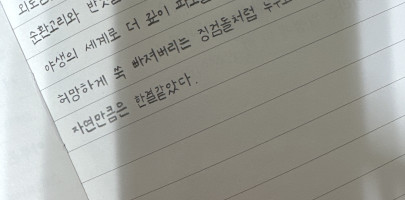 외도
순환고리와 반
야생의 세계로 더 깊이 파고
허망하게 쏙 빠져버리는 징검돌처럼 누구
자연만큼은 한결같았다.